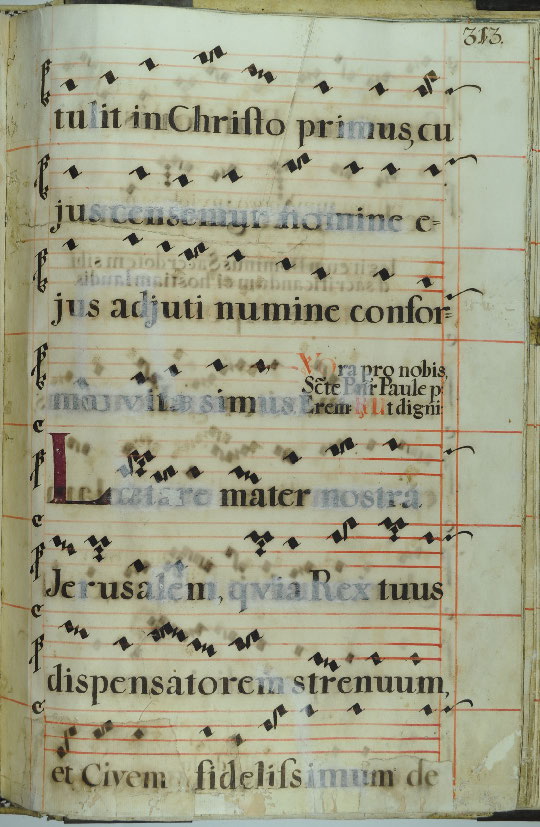 313.
tulit in Chriſto primus, cu
jus censemur nomine e-
jus adjuti numine confor-
vitæ simus
ra pro nobis
Scte Patr Paule p
Erem ut digni
Lætare mater nostra
Jerusalem, qvia Rex tuus
dispensatorem strenuum,
et Civem fidelifsimum de